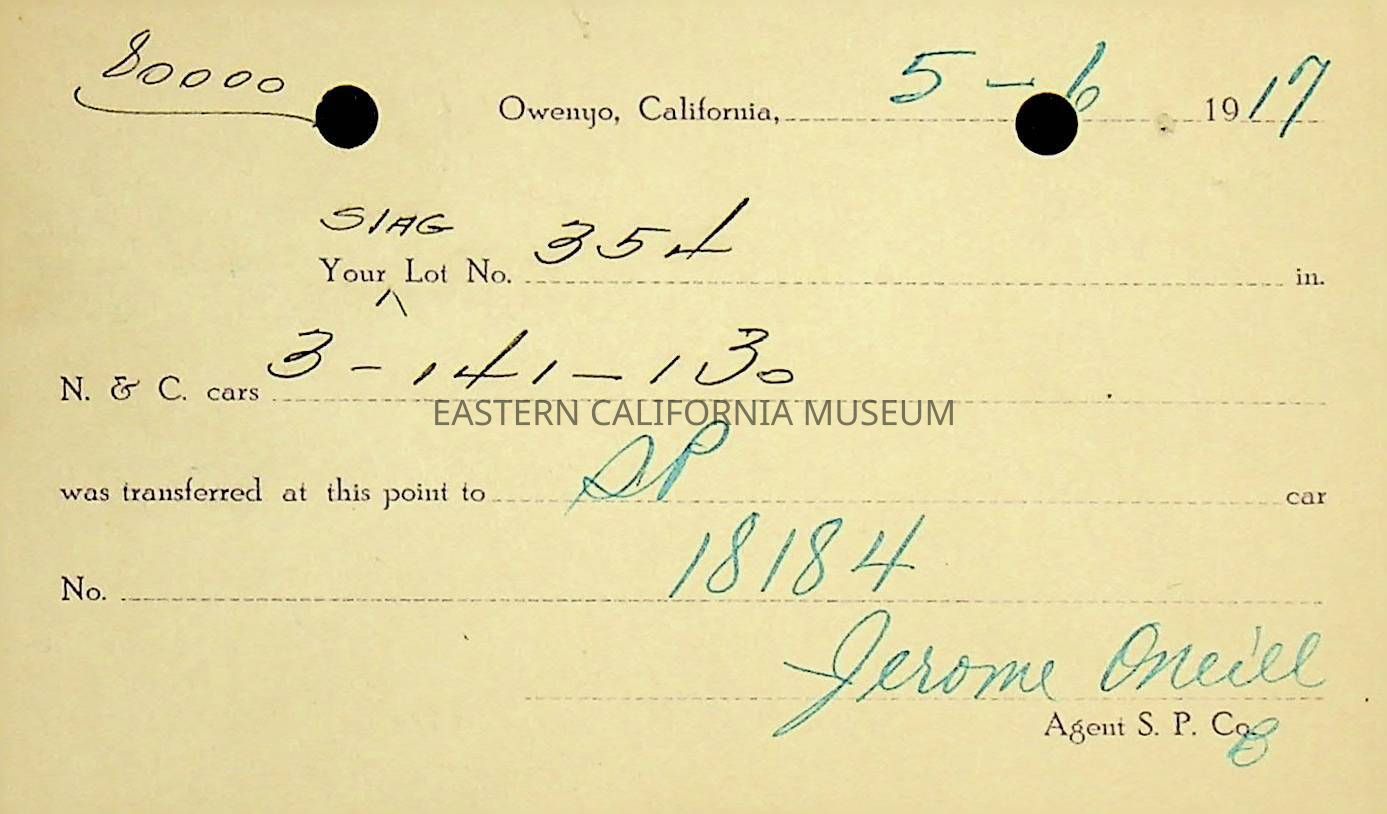 80000
Owenyo, California, 5 - 6 1917
SlAG
Your ^ Lot No. 354 in.
N. & C. cars 3 - 141 - 130
EASTERN CALIFORNIA MUSEUM
was transferred at this point to SP car
No. 18184
Jerome Oneill
Agent S. P. Co.